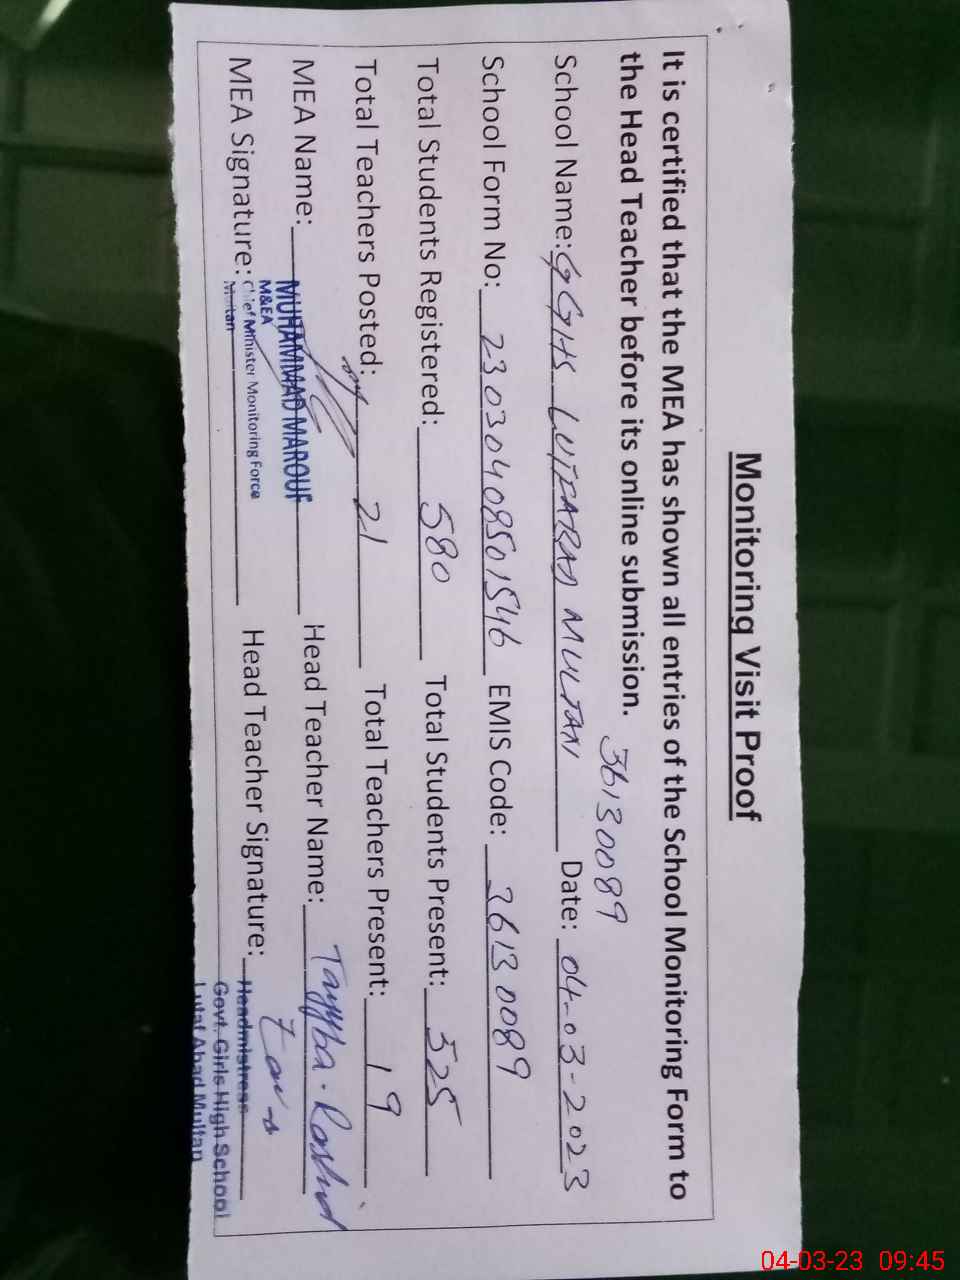 Monitoring Visit Proof
It is certified that the MEA has shown all entries of the School Monitoring Form to
the Head Teacher before its online submission. 36130089
School Name: GGHS LUTFABAD MULTAN Date: 04-03-2023
School Form No: 23030408501546 EMIS Code: 36130089
Total Students Registered: 580 Total Students Present: 525
Total Teachers Posted: 21 Total Teachers Present: 19
MEA Name: MUHAMMAD MAROUF Head Teacher Name: Tayyba. Rashid
M&EA
MEA Signature: Chief Minister Monitoring Force Head Teacher Signature:
Multan
Headmistress
Govt. Girls High School
Lutaf Abad Multan
04-03-23 09:45